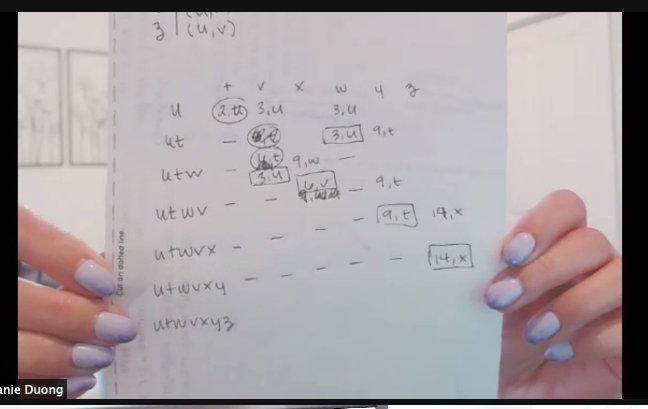 z | (u,v)
t v x w y z
u 2,u 3,u 3,u
ut - 3,u 9,t
4,t 9,w -
utw - 3,u 6,v
utwv - - - 9,t
- 9,t 14,x
utwvx - - -
utwvxy - - - - - 14,x
utwvxyz
Cut on dotted line.
anie Duong